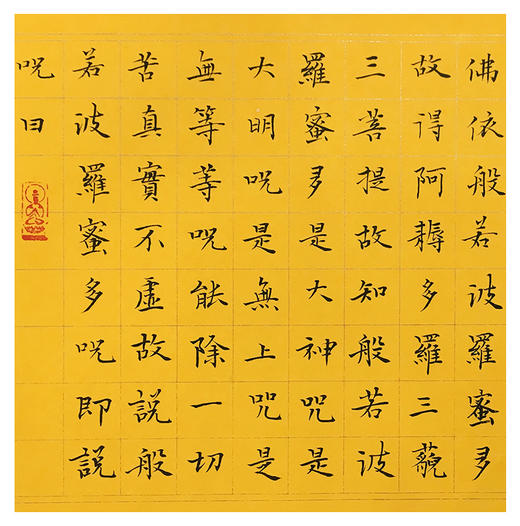 佛依般若波羅蜜多
故得阿耨多羅三藐
三菩提故知般若波
羅蜜多是大神咒是
大明咒是無上咒是
無等等咒能除一切
苦真實不虛故說般
若波羅蜜多咒即說
咒曰